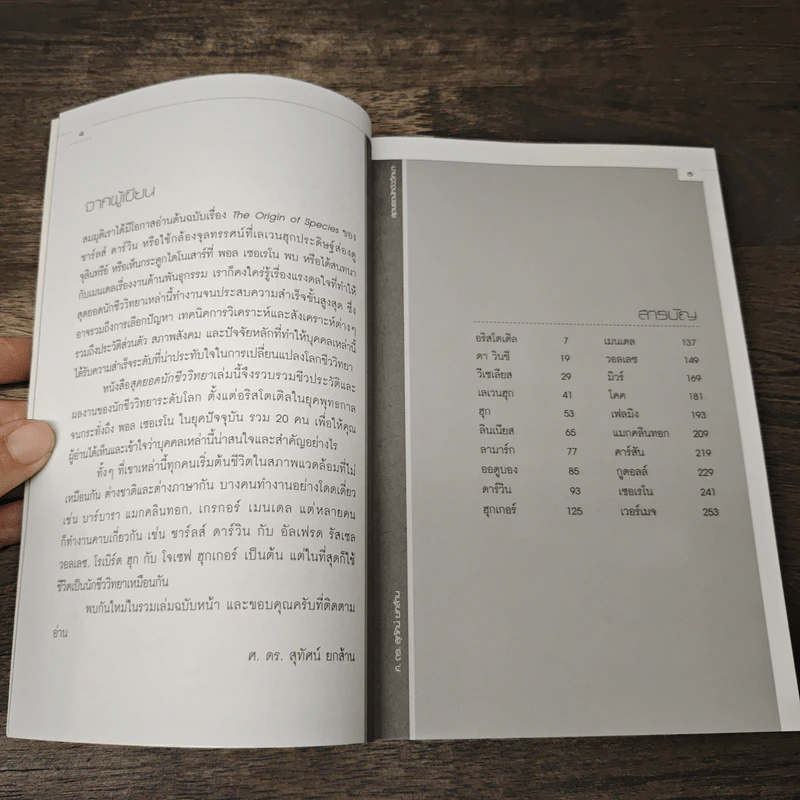 ๔
จากผู้เขียน
สมมุติเราได้มีโอกาสอ่านต้นฉบับเรื่อง The Origin of Species ของ
ชาร์ลส์ ดาร์วิน หรือใช้กล้องจุลทรรศน์ที่เลเวนฮุกประดิษฐ์ส่องดู
จุลินทรีย์ หรือเห็นกระดูกไดโนเสาร์ที่ พอล เซอเรโน พบ หรือได้สนทนา
กับเมนเดลเรื่องงานด้านพันธุกรรม เราก็คงใคร่รู้เรื่องแรงดลใจที่ทำให้
สุดยอดนักชีววิทยาเหล่านี้ทำงานจนประสบความสำเร็จขั้นสูงสุด ซึ่ง
อาจรวมถึงการเลือกปัญหา เทคนิคการวิเคราะห์และสังเคราะห์ต่างๆ
รวมถึงประวัติส่วนตัว สภาพสังคม และปัจจัยหลักที่ทำให้บุคคลเหล่านี้
ได้รับความสำเร็จระดับที่น่าประทับใจในการเปลี่ยนแปลงโลกชีววิทยา
หนังสือสุดยอดนักชีววิทยาเล่มนี้จึงรวบรวมชีวประวัติและ
ผลงานของนักชีววิทยาระดับโลก ตั้งแต่อริสโตเติลในยุคพุทธกาล
จนกระทั่งถึง พอล เซอเรโน ในยุคปัจจุบัน รวม 20 คน เพื่อให้คุณ
ผู้อ่านได้เห็นและเข้าใจว่าบุคคลเหล่านี้น่าสนใจและสำคัญอย่างไร
ทั้งๆ ที่เขาเหล่านี้ทุกคนเริ่มต้นชีวิตในสภาพแวดล้อมที่ไม่
เหมือนกัน ต่างชาติและต่างภาษากัน บางคนทำงานอย่างโดดเดี่ยว
เช่น บาร์บารา แมกคลินทอก, เกรกอร์ เมนเดล แต่หลายคน
ก็ทำงานคาบเกี่ยวกัน เช่น ชาร์ลส์ ดาร์วิน กับ อัลเฟรด รัสเซล
วอลเลซ, โรเบิร์ต ฮุก กับ โจเซฟ ฮุกเกอร์ เป็นต้น แต่ในที่สุดก็ใช้
ชีวิตเป็นนักชีววิทยาเหมือนกัน
พบกันใหม่ในรวมเล่มฉบับหน้า และขอบคุณครับที่ติดตาม
อ่าน
ศ. ดร. สุทัศน์ ยกส้าน
สุดยอดนักชีววิทยา
ศ. ดร. สุทัศน์ ยกส้าน
๕
สารบัญ
อริสโตเติล 7
ดา วินชี 19
วีเซเลียส 29
เลเวนฮุก 41
ฮุก 53
ลินเนียส 65
ลามาร์ก 77
ออดูบอง 85
ดาร์วิน 93
ฮุกเกอร์ 125
เมนเดล 137
วอลเลซ 149
มิวร์ 169
โคค 181
เฟลมิง 193
แมกคลินทอก 209
คาร์สัน 219
กูดอลล์ 229
เซอเรโน 241
เวอร์เมจ 253